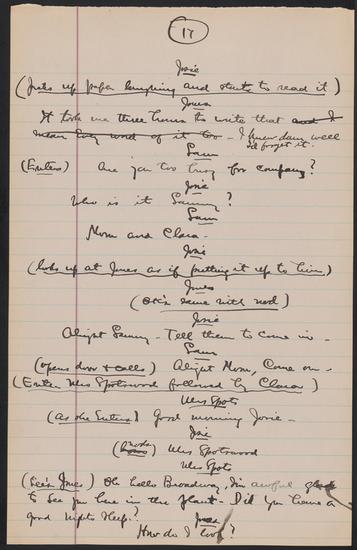 17
Josie
(Picks up paper laughing and starts to read it)
Jones
It took me three hours to write that and I
mean every word of it too - I knew darn well
I'd forget it.
Sam
(Enters) Are you too busy for company?
Josie
Who is it Sammy?
Sam
Mom and Clara -
Josie
(looks up at Jones as if putting it up to him)
Jones
(OK's same with nod)
Josie
Alright Sammy - Tell them to come in -
Sam
(opens door & calls) Alright Mom, Come on -
(Enter Mrs Spotswood followed by Clara)
Mrs Spots
(As she Enters) Good morning Josie -
Josie
(nods) Mrs Spotswood
Mrs Spots
(Sees Jones) Oh hello Broadway, I'm awful glad
to see you here in the plant - Did you have a
good nights sleep?
Jones
How do I look?